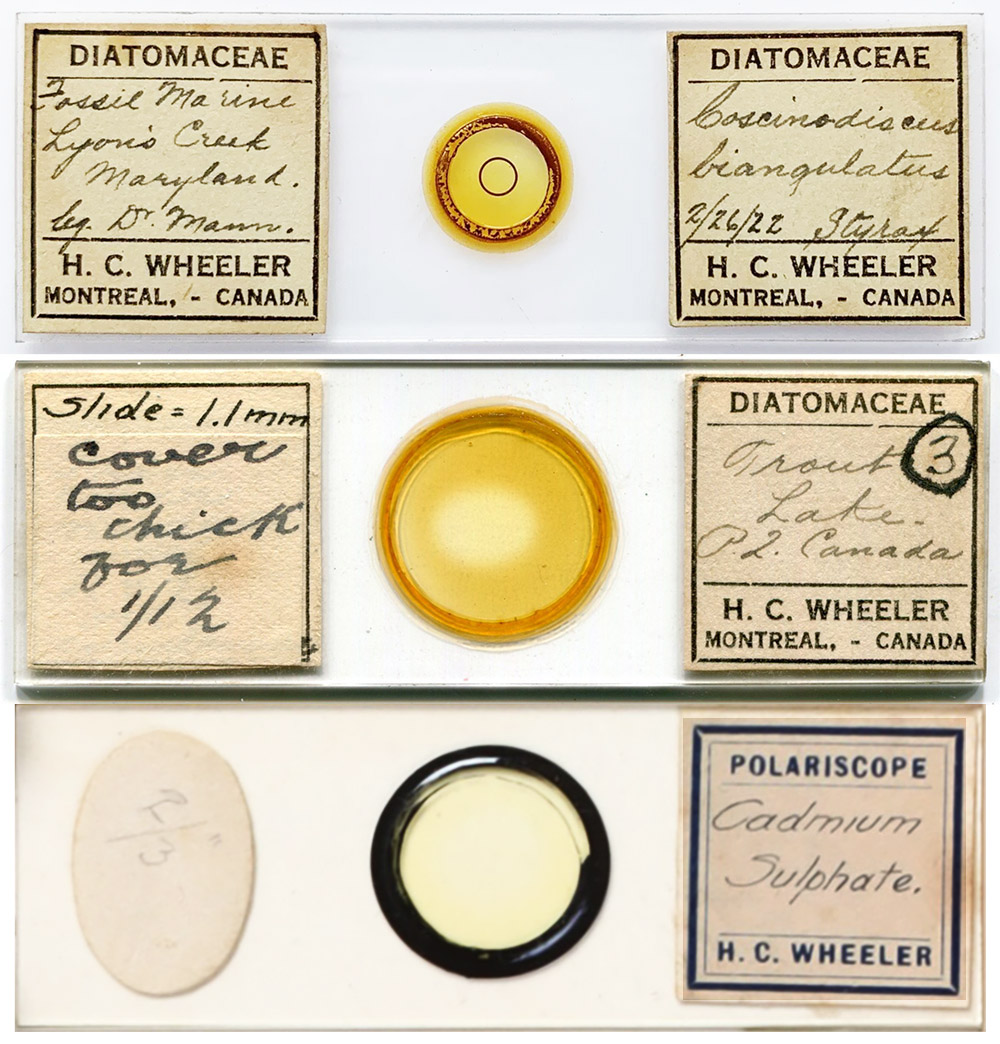 DIATOMACEAE
Fossil Marine
Lyon's Creek
Maryland.
leg. Dr. Mann.
H. C. WHEELER
MONTREAL, - CANADA
DIATOMACEAE
Coscinodiscus
biangulatus
2/26/22 Styrax
H. C. WHEELER
MONTREAL, - CANADA
Slide = 1.1mm
cover
too
thick
for
1/12
DIATOMACEAE
Trout 3
Lake.
P.Q. Canada
H. C. WHEELER
MONTREAL, - CANADA
2/3"
POLARISCOPE
Cadmium
Sulphate.
H. C. WHEELER